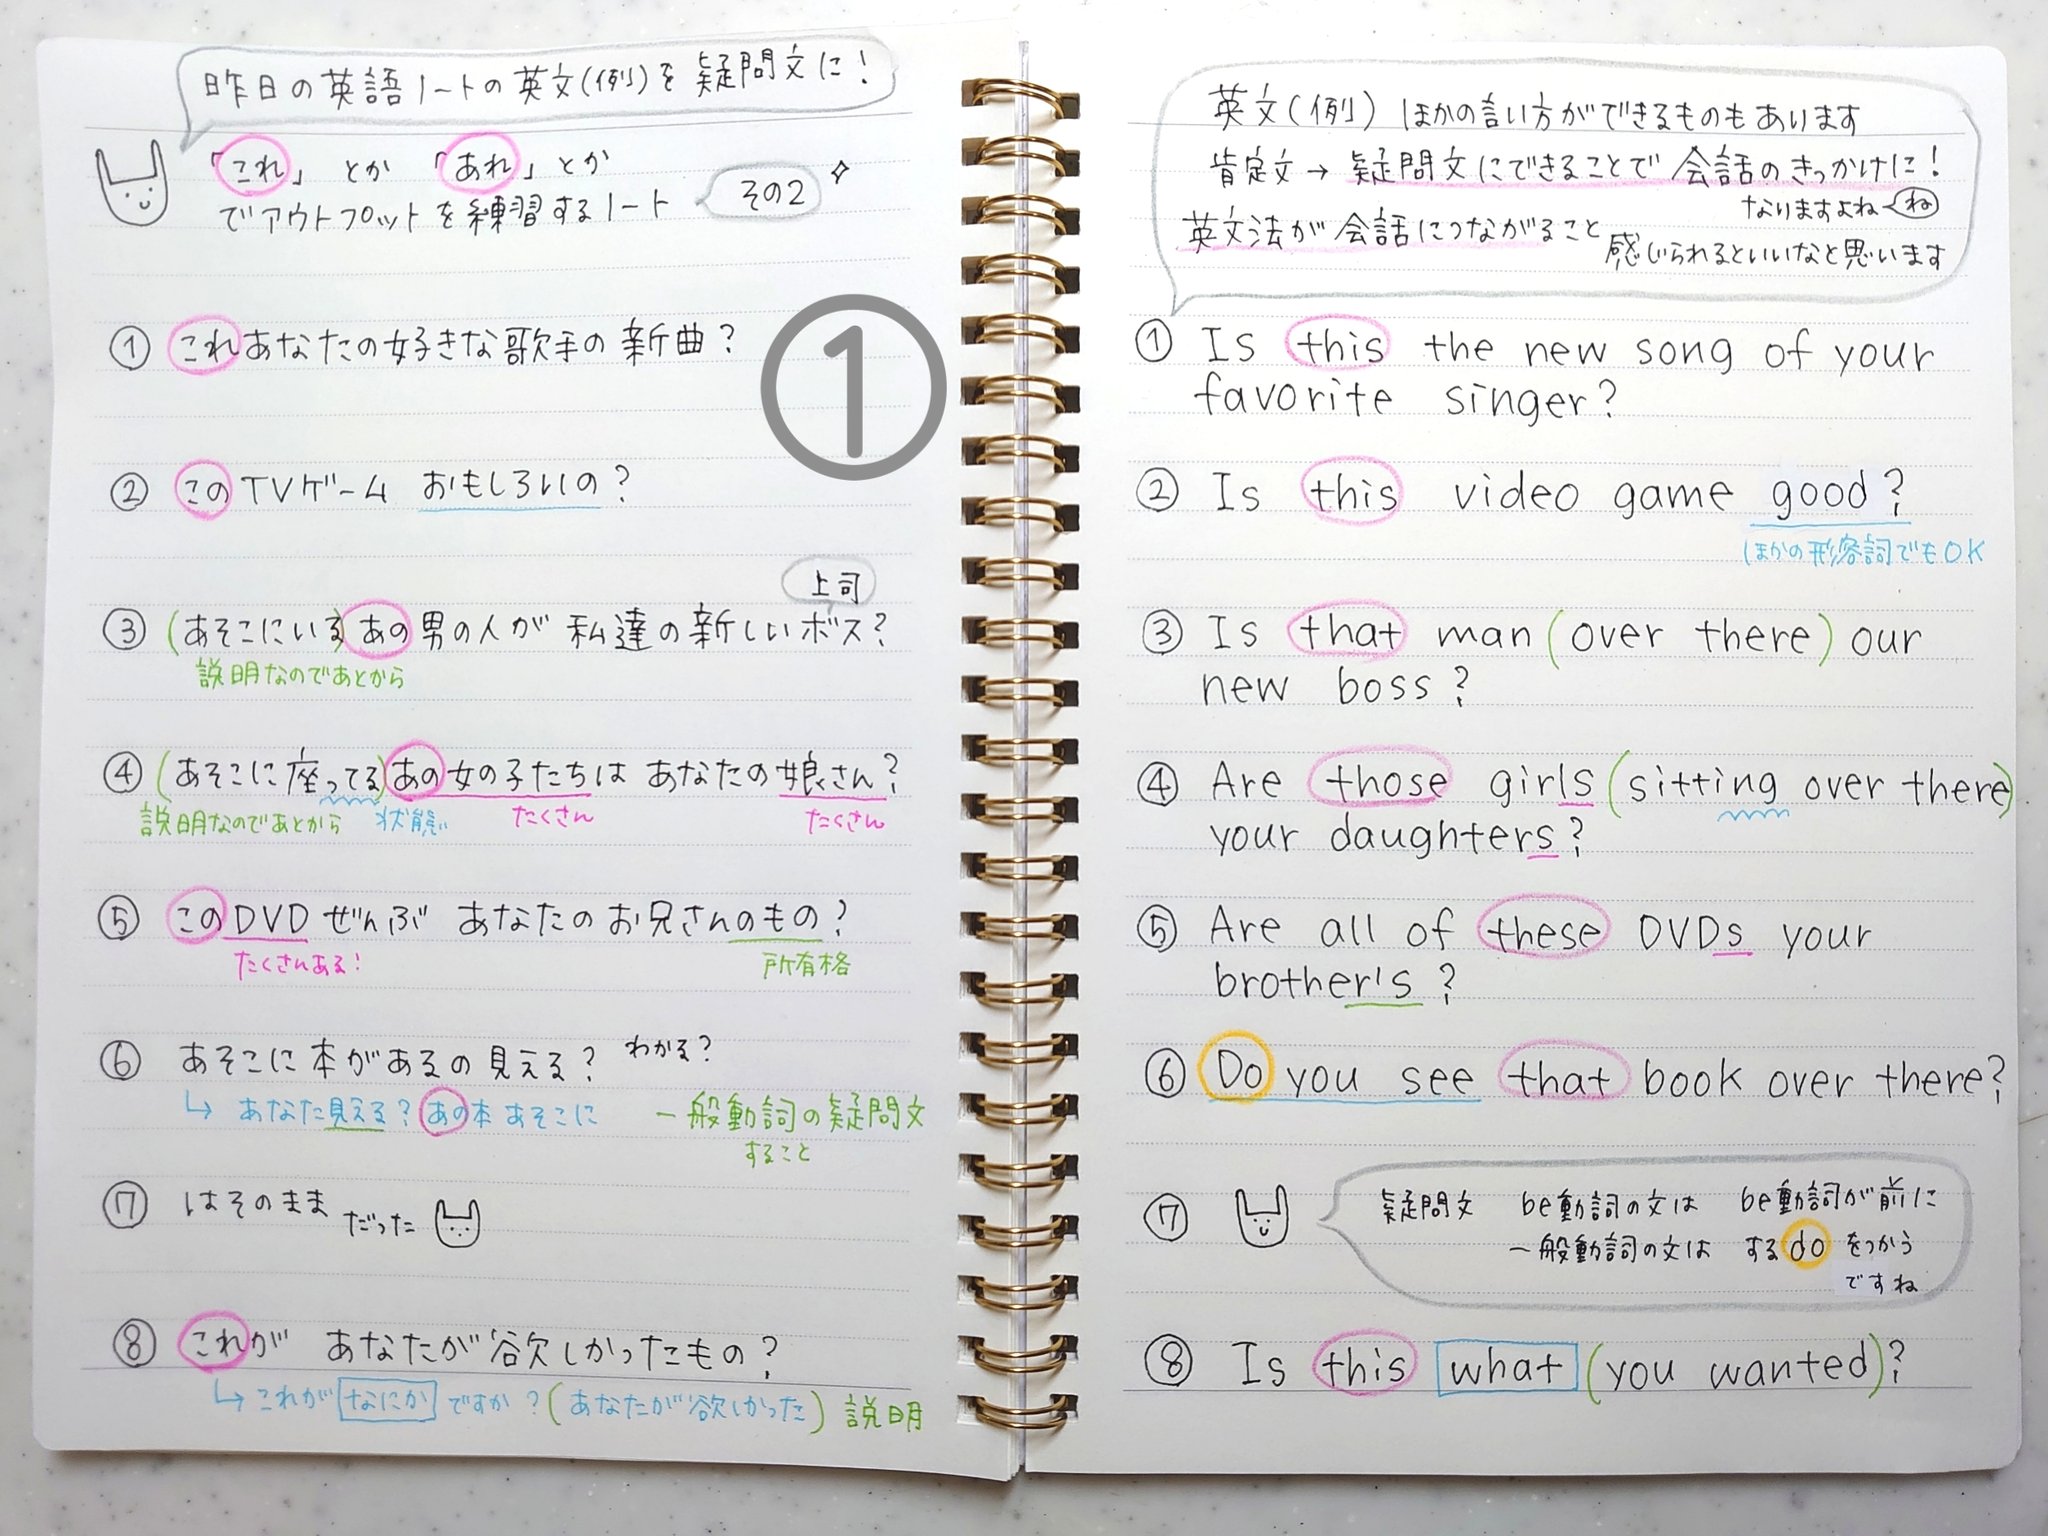 昨日の英語ノートの英文(例)を疑問文に!
「これ」とか「あれ」とか
でアウトプットを練習するノート
その2
①
① これあなたの好きな歌手の新曲?
② このTVゲーム おもしろいの?
上司
③ (あそこにいる)あの男の人が 私達の新しいボス?
説明なのであとから
④ (あそこに座ってる)あの女の子たちは あなたの娘さん?
説明なのであとから 状態 たくさん たくさん
⑤ このDVDぜんぶ あなたのお兄さんのもの?
たくさんある! 所有格
⑥ あそこに本があるの見える? わかる?
↳ あなた見える?あの本 あそこに 一般動詞の疑問文
すること
⑦ はそのまま だった
⑧ これが あなたが欲しかったもの?
↳ これが なにか ですか?(あなたが欲しかった) 説明
英文(例) ほかの言い方ができるものもあります
肯定文→疑問文にできることで 会話のきっかけに!
なりますよね ね
英文法が会話につながること
感じられるといいなと思います
① Is this the new song of your
favorite singer?
② Is this video game good?
ほかの形容詞でもOK
③ Is that man (over there) our
new boss?
④ Are those girls (sitting over there)
your daughters?
⑤ Are all of these DVDs your
brother's?
⑥ Do you see that book over there?
⑦ 疑問文 be動詞の文は be動詞が前に
一般動詞の文は する do をつかう
ですね
⑧ Is this what (you wanted)?